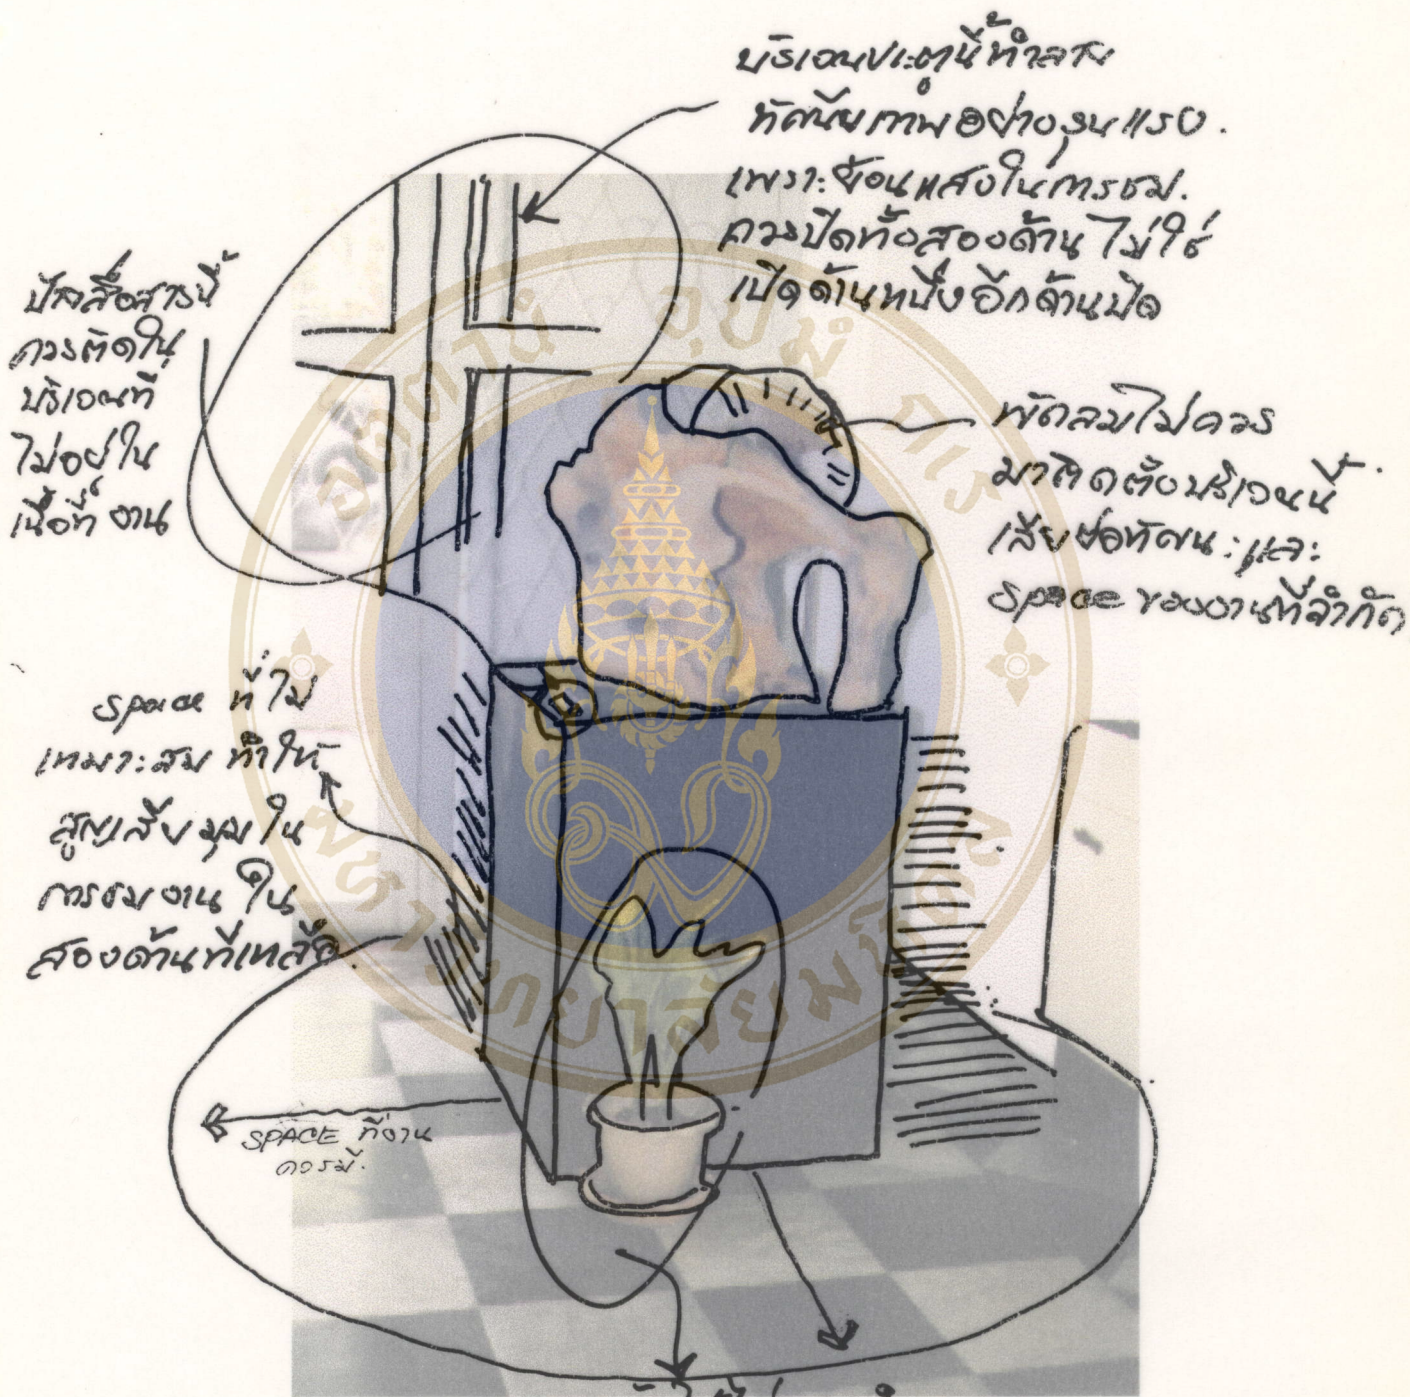 บริเวณประตูนี้ทำลาย
ทัศนียภาพอย่างรุนแรง.
เพราะย้อนแสงในการชม.
ควรปิดทั้งสองด้าน ไม่ใช่
เปิดด้านหนึ่งอีกด้านปิด
ป้ายสื่อสารนี้
ควรติดใน
บริเวณที่
ไม่อยู่ใน
เนื้อที่ งาน
พัดลมไม่ควร
มาติดตั้งบริเวณนี้
เสียต่อทัศนะและ
space ของงานที่จำกัด
space ที่ไม่
เหมาะสม ทำให้
สูญเสียมุมใน
การชมงาน ใน
สองด้านที่เหลือ.
SPACE ที่งาน
ควรมี.
อตฺตานํ อุปมํ กเร
มหาวิทยาลัยมหิดล